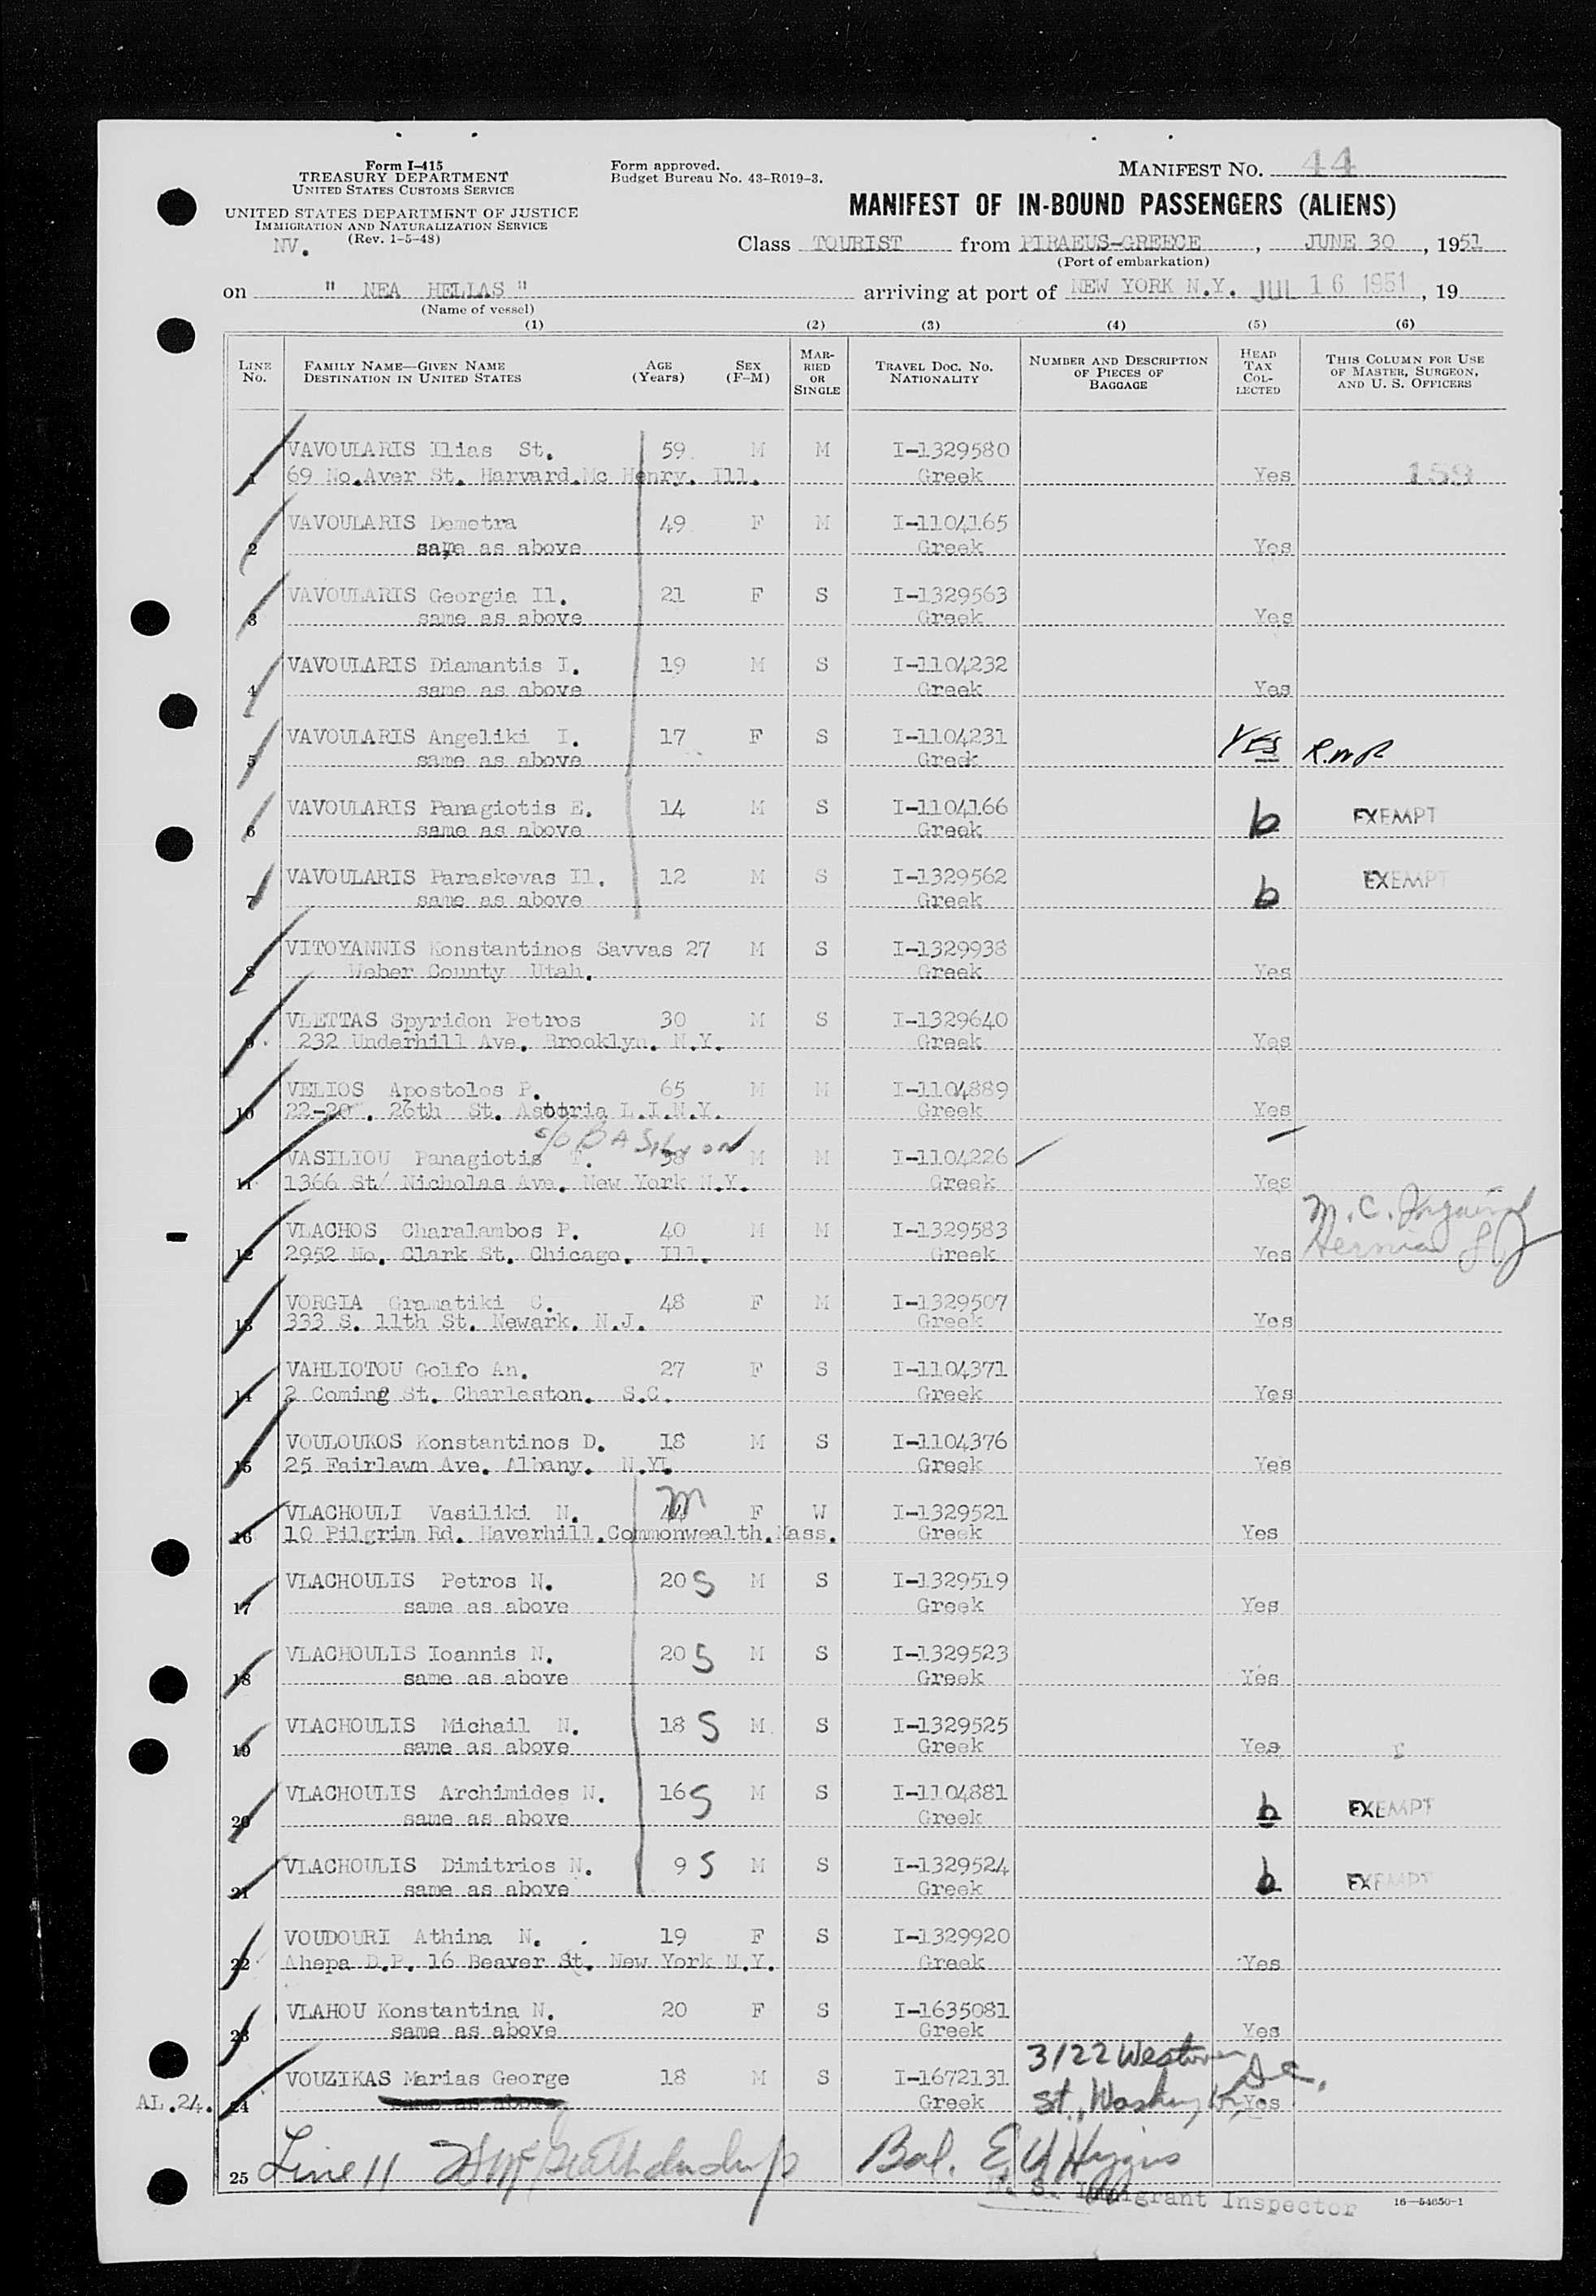 Form I-415
TREASURY DEPARTMENT
UNITED STATES CUSTOMS SERVICE
UNITED STATES DEPARTMENT OF JUSTICE
IMMIGRATION AND NATURALIZATION SERVICE
(Rev. 1-5-48)
NV.
Form approved.
Budget Bureau No. 43-R019-3.
MANIFEST NO. 44
MANIFEST OF IN-BOUND PASSENGERS (ALIENS)
Class TOURIST from PIRAEUS-GREECE, JUNE 30, 1951
(Port of embarkation)
on " NEA HELLAS " arriving at port of NEW YORK N.Y. JUL 16 1951, 19
(Name of vessel)
(1) (2) (3) (4) (5) (6)
LINE No. FAMILY NAME—GIVEN NAME DESTINATION IN UNITED STATES AGE (Years) SEX (F-M) MARRIED OR SINGLE TRAVEL DOC. NO. NATIONALITY NUMBER AND DESCRIPTION OF PIECES OF BAGGAGE HEAD TAX COLLECTED THIS COLUMN FOR USE OF MASTER, SURGEON, AND U. S. OFFICERS
VAVOULARIS Ilias St. 59 M M I-1329580
1 69 No.Aver St. Harvard.Mc Henry. Ill. Greek Yes 159
VAVOULARIS Demetra 49 F M I-1104165
2 same as above Greek Yes
VAVOULARIS Georgia Il. 21 F S I-1329563
3 same as above Greek Yes
VAVOULARIS Diamantis I. 19 M S I-1104232
4 same as above Greek Yes
VAVOULARIS Angeliki I. 17 F S I-1104231
5 same as above Greek YES R.W.R
VAVOULARIS Panagiotis E. 14 M S I-1104166
6 same as above Greek b EXEMPT
VAVOULARIS Paraskevas Il. 12 M S I-1329562
7 same as above Greek b EXEMPT
VITOYANNIS Konstantinos Savvas 27 M S I-1329938
8 Weber County Utah. Greek Yes
VLETTAS Spyridon Petros 30 M S I-1329640
9 232 Underhill Ave. Brooklyn. N.Y. Greek Yes
VELIOS Apostolos P. 65 M M I-1104889
10 22-20 . 26th St. Astoria L.I.N.Y. Greek Yes
c/o
VASILIOU Panagiotis T. 58 M M I-1104226
11 1366 St/ Nicholas Ave. New York N.Y. Greek Yes
VLACHOS Charalambos P. 40 M M I-1329583 M.C. Inguinal
12 2952 No. Clark St. Chicago. Ill. Greek Yes Hernia
VORGIA Gramatiki C. 48 F M I-1329507
13 333 S. 11th St. Newark. N.J. Greek Yes
VAHLIOTOU Golfo An. 27 F S I-1104371
14 2 Coming St. Charleston. S.C. Greek Yes
VOULOUKOS Konstantinos D. 18 M S I-1104376
15 25 Fairlawn Ave. Albany. N.Y. Greek Yes
VLACHOULI Vasiliki N. 44 M F W I-1329521
16 10 Pilgrim Rd. Haverhill.Commonwealth.Mass. Greek Yes
VLACHOULIS Petros N. 20 S M S I-1329519
17 same as above Greek Yes
VLACHOULIS Ioannis N. 20 S M S I-1329523
18 same as above Greek Yes
VLACHOULIS Michail N. 18 S M S I-1329525
19 same as above Greek Yes
VLACHOULIS Archimides N. 16 S M S I-1104881
20 same as above Greek b EXEMPT
VLACHOULIS Dimitrios N. 9 S M S I-1329524
21 same as above Greek b EXEMPT
VOUDOURI Athina N. 19 F S I-1329920
22 Ahepa D.P. 16 Beaver St. New York N.Y. Greek Yes
VLAHOU Konstantina N. 20 F S I-1635081
23 same as above Greek Yes
VOUZIKAS Marias George 18 M S I-1672131 3122 Western
AL.24. 24 same as above Greek St., Washington, D.C. Yes
25 Line 11 Bal. E Higgins
U. S. Immigrant Inspector
16—54650-1